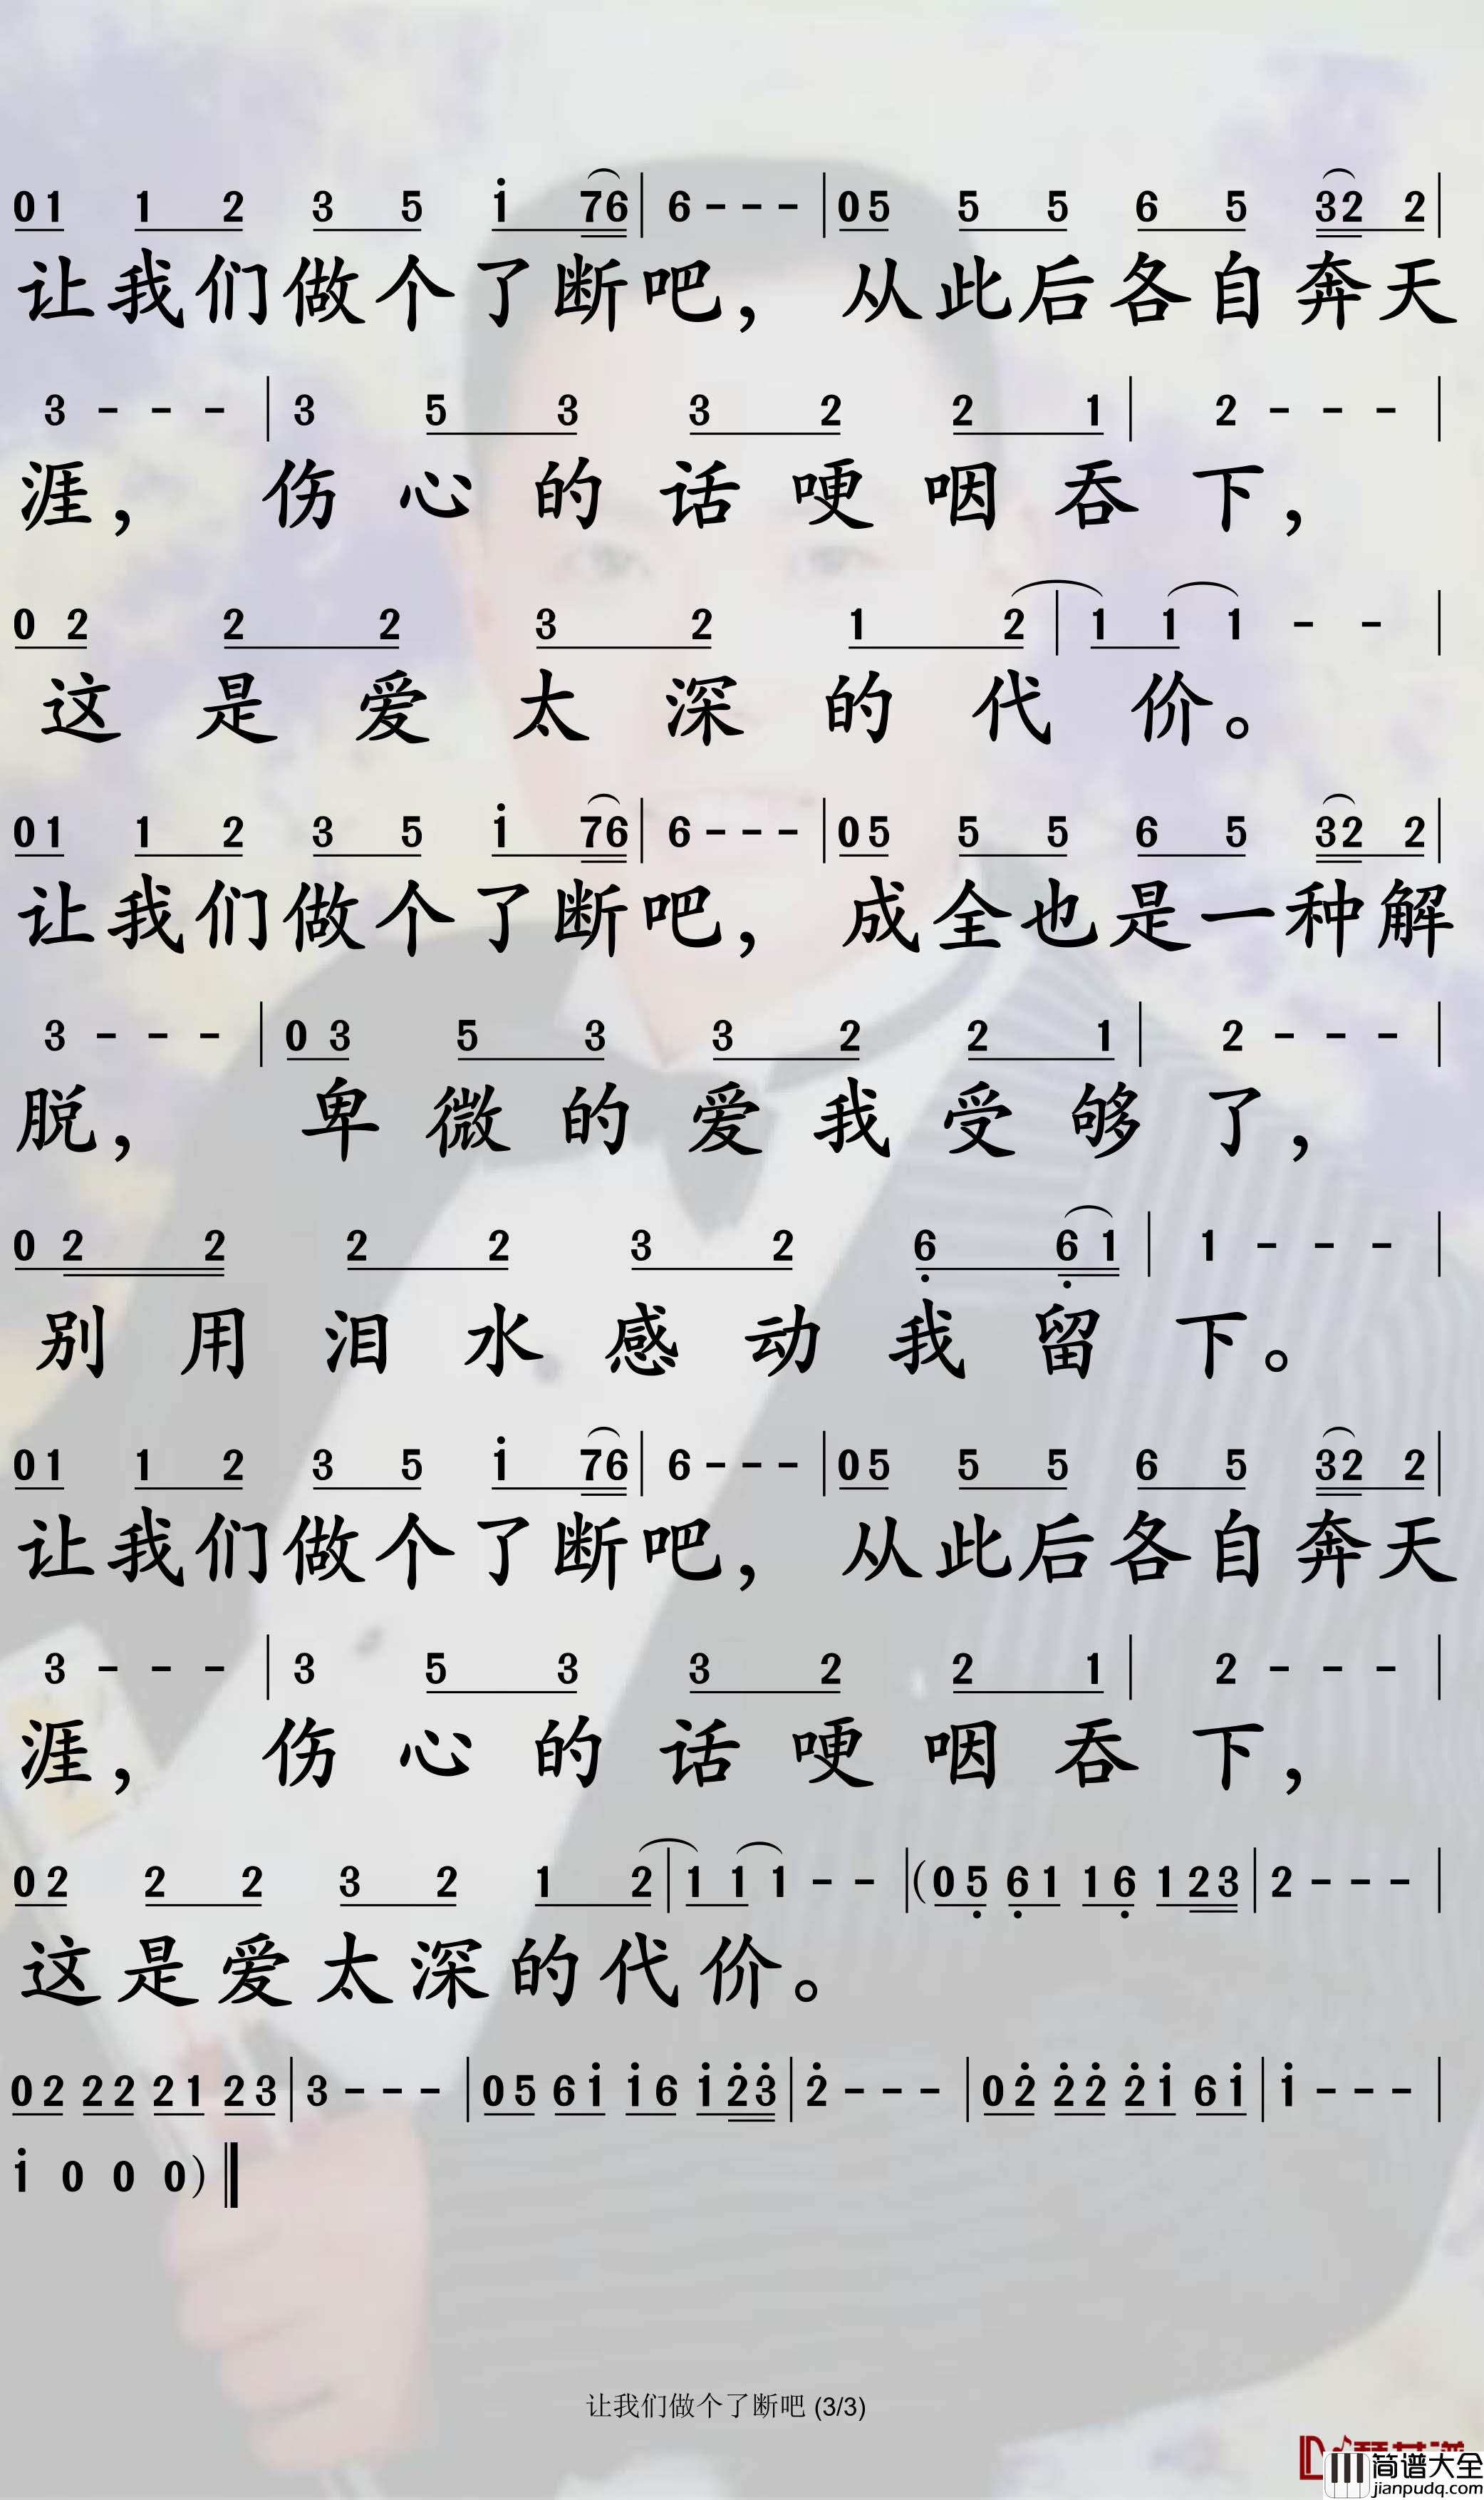 01 1 2 3 5 i 76 | 6 - - - | 05 5 5 6 5 32 2 |
让我们做个了断吧， 从此后各自奔天
3 - - - | 3 5 3 3 2 2 1 | 2 - - - |
涯， 伤心的话哽咽吞下，
0 2 2 2 3 2 1 2 | 1 1 1 - - |
这是爱太深的代价。
01 1 2 3 5 i 76 | 6 - - - | 05 5 5 6 5 32 2 |
让我们做个了断吧， 成全也是一种解
3 - - - | 0 3 5 3 3 2 2 1 | 2 - - - |
脱， 卑微的爱我受够了，
0 2 2 2 2 3 2 6̣ 6̣ 1 | 1 - - - |
别用泪水感动我留下。
01 1 2 3 5 i 76 | 6 - - - | 05 5 5 6 5 32 2 |
让我们做个了断吧， 从此后各自奔天
3 - - - | 3 5 3 3 2 2 1 | 2 - - - |
涯， 伤心的话哽咽吞下，
02 2 2 3 2 1 2 | 1 1 1 - - | (05̣ 6̣1 16̣ 123 | 2 - - - |
这是爱太深的代价。
02 22 21 23 | 3 - - - | 05 6i i6 i2̇3̇ | 2̇ - - - | 02̇ 2̇2̇ 2̇i 6i | i - - - |
i 0 0 0) ‖
让我们做个了断吧 (3/3)
简谱大全
jianpudq.com